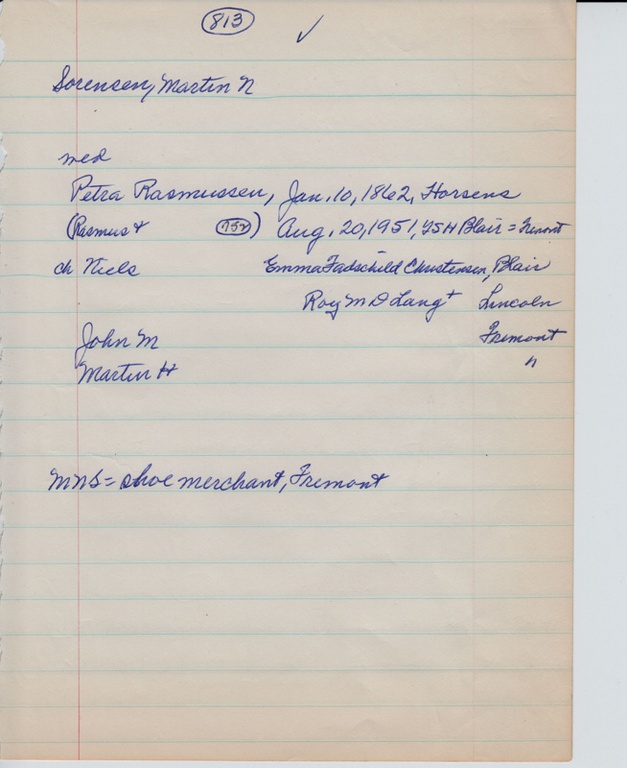 813 ✓
Sorensen, Martin N
med
Petra Rasmussen, Jan. 10, 1862, Horsens
(Rasmus + 752) Aug. 20, 1951, YSH Blair = Fremont
ch Niels Emma Fadschild Christensen, Blair
Roy M D Lang + Lincoln
John M Fremont
Martin H "
MNS = shoe merchant, Fremont